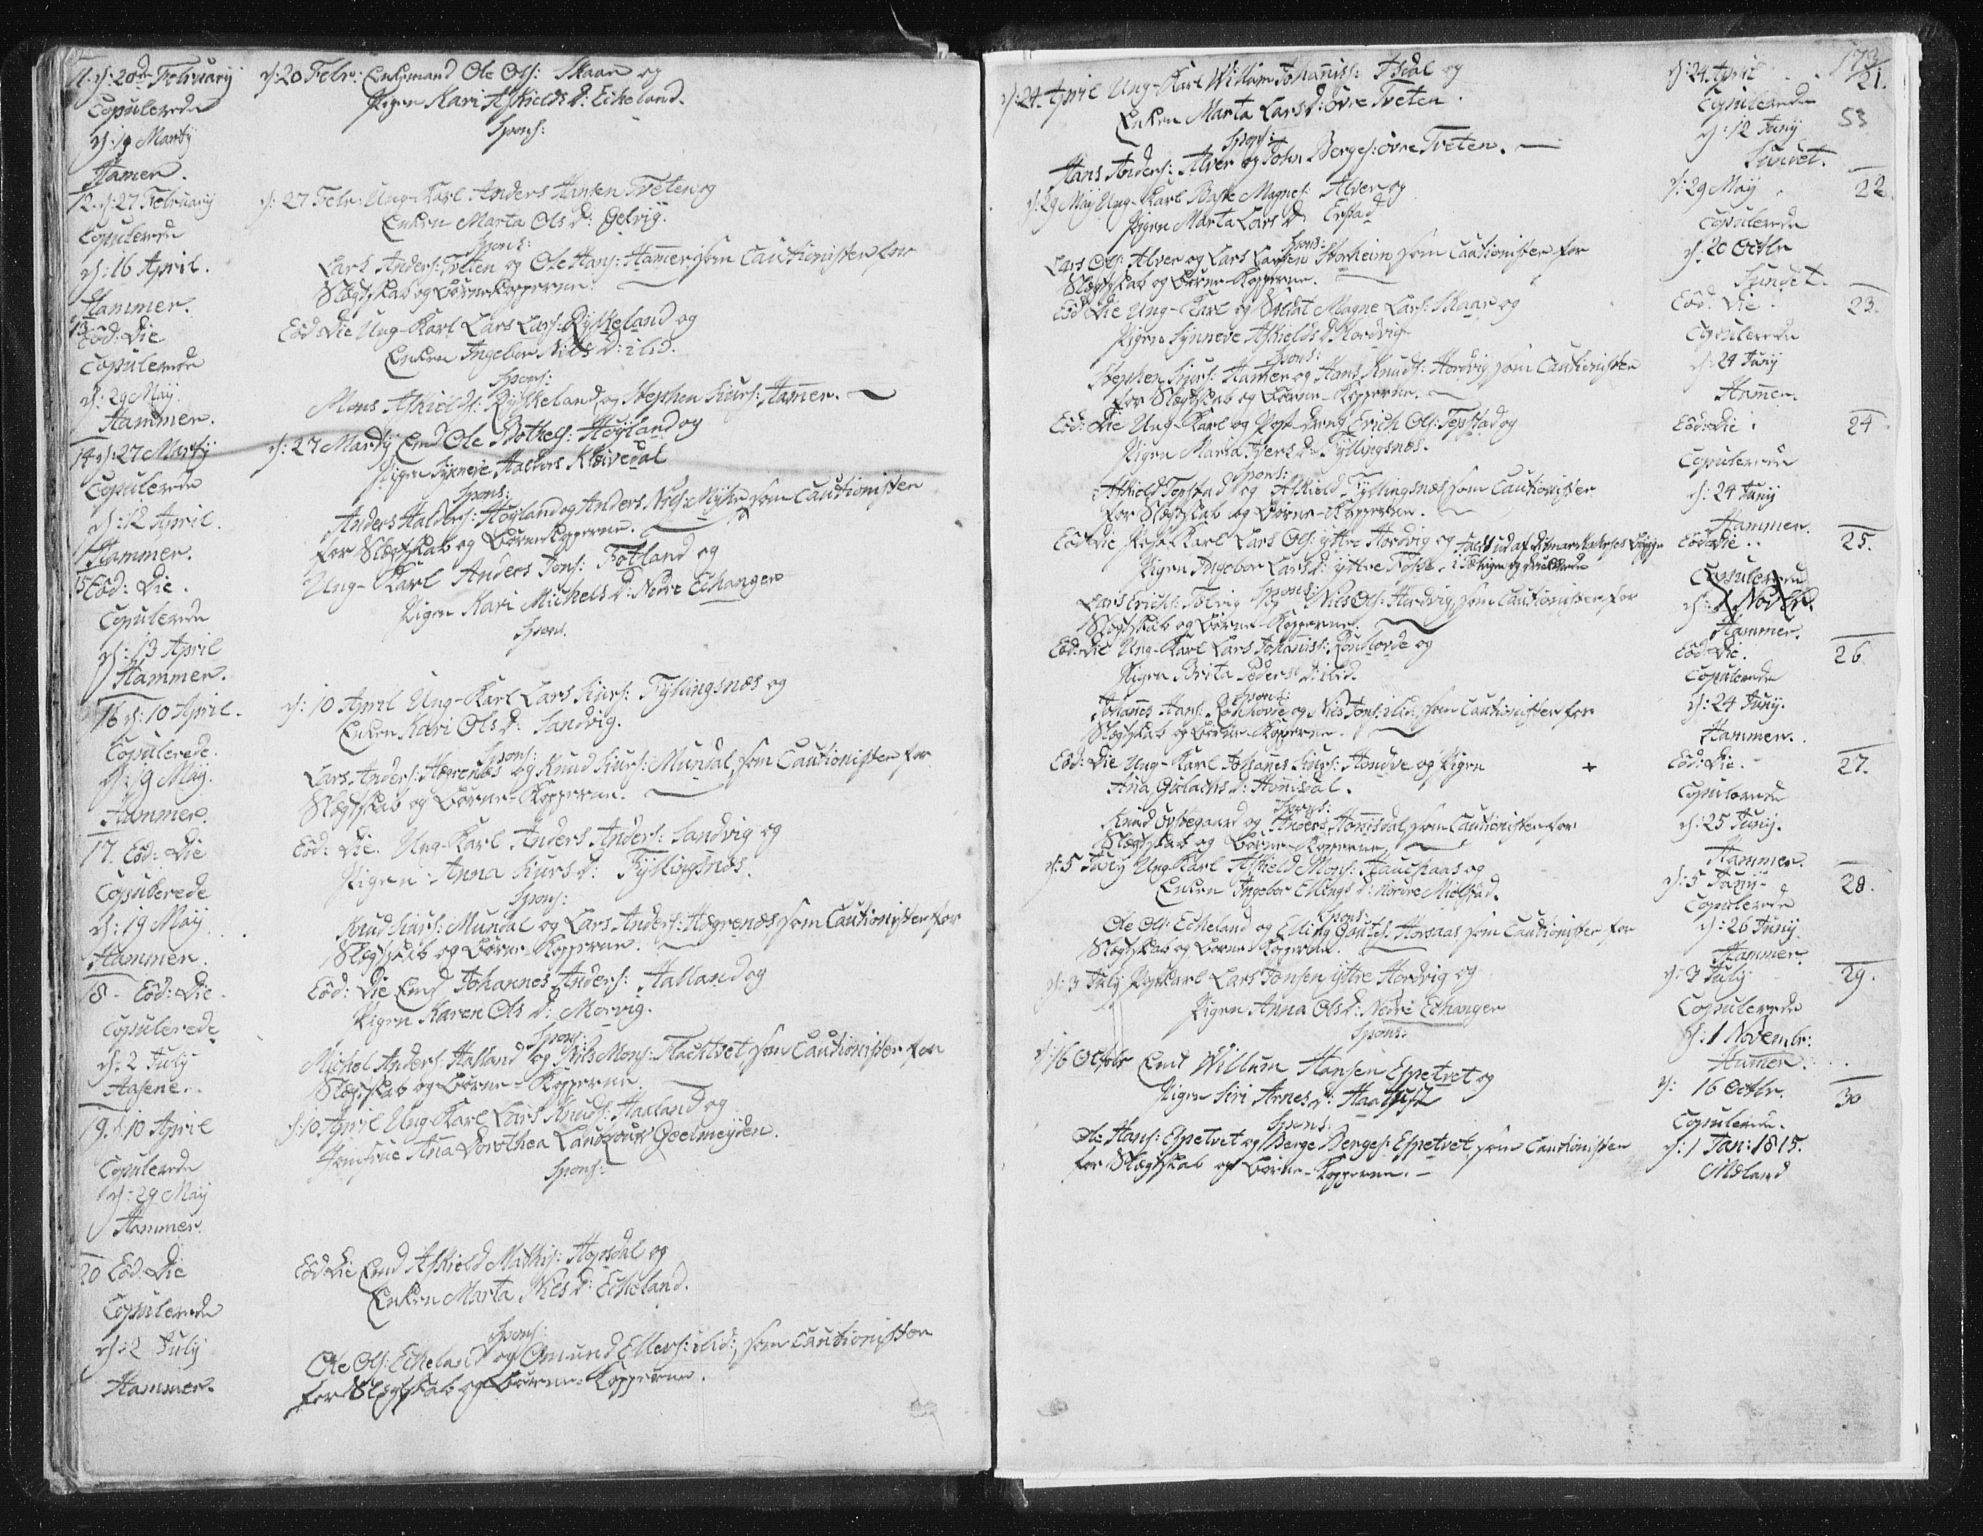 11. d: 20de February
Copulerede
d: 19 Marty
Hamer.
d: 20 Febr: Enkemand Ole Ols: Skaar og
Pigen Kari Askields D: Eikeland.
Spons:
12. d: 27 February
Copulerede
d: 16 April.
Hammer.
d: 27 Febr: Ung-Karl Anders Hansen Tveten og
Enken Marta Ols D: Gelvig.
Spons:
Lars Anders: Tveten og Ole Hans: Hamer, som Cautionister for
Slægtskab og Børne-Kopperne.
13 Eod: Die
Copulerede
d: 29 May.
Hammer.
Eod: Die Ung-Karl Lars Lars: Rylkeland og
Enken Ingebor Niels D: ibid.
Spons:
Mons Askields: Rylkeland, og Stephen Siurs: Hamer.
14 d: 27 Marty
Copulerede
d: 12 April.
Hammer.
d: 27 Marty Emd Ole Bothels: Høyland og
Pigen Synneve Haldors Kleivedal
Spons:
Anders Haldors: Høyland og Anders Niels: Mykle, som Cautionister
for Slægtskab og Børne-Kopperne.
15 Eod: Die.
Copulerede
d: 13 April
Hammer.
Ung-Karl Anders Jons: Fotland og
Pigen Kari Michels D: Nedre Eichanger
Spons.
16 d: 10 April.
Copulerede.
d: 19 May.
Hammer.
d: 10 April Ung-Karl Lars Siurs: Fyllingsnæs og
Enken Kari Ols D: Sandvig.
Spons:
Lars Anders: Hægrenæs og Knud Siurs: Mundal, som Cautionister for
Slægtskab og Børne-Kopperne.
17. Eod: Die
Copulerede
d: 19 May.
Hammer.
Eod: Die. Ung-Karl Anders Anders: Sandvig og
Pigen Anna Siurs D: Fyllingsnæs.
Spons:
Knud Siurs: Mundal og Lars Anders: Hægrenæs som Cautionister for
Slægtskab og Børne-Kopperne.
18. Eod: Die.
Copulerede
d: 2 July
Aasene.
Eod: Die Emd Johannes Anders: Halland og
Pigen Karen Ols D: Mørvig.
Spons:
Michel Anders: Halland og Nils Mons: Flacktvet, som Cautionister for
Slægtskab og Børne-Kopperne.
19. d: 10 April
Copulerede
d: 29 May
Hammer.
d: 10 April Ung-Karl Lars Knuds: Hauland og
Jomfrue Ana Dorothea Geelmeyden.
Spons:
20 Eod: Die
Copulerede
d: 2 July
Hammer.
Eod: Die Emd Askield Mathis: Hopsdal og
Enken Marta Niels D: Eikeland.
Spons:
Ole Ols: Eikeland og Omund Ellers: ibid:, som Cautionister
for Slægtskab og Børne-Kopperne.
173
53
d: 24. April Ung-Karl Willum Johanness: Isdal og
Enken Marta Lars D: øvre Tveten.
Spons:
Hans Anders: Alver og John Berges: øvre Tveten.
d: 24 April
Copulerede
d: 12 Juny
Sundet.
21.
d: 29 May Ung-Karl Baste Magnes: Alver og
Pigen Marta Lars D: Erstad
Spons:
Lars Ols: Alver og Lars Larsen Storheim som Cautionister for
Slægtskab og Børne-Kopperne.
d: 29 May
Copulerede
d: 20 Octbr
Sundet.
22.
Eod: Die Ung-Karl og Soldat Magne Lars: Skaar og
Pigen Synneve Askields D: Hordvig
Spons:
Stephen Siurs: Hamer og Hans Knuds: Hordvig som Cautionister
for Slægtskab og Børne-Kopperne.
Eod: Die.
Copulerede
d: 24 Juny
Hamer.
23.
Eod: Die Ung-Karl og Erich Ols: Tepstad og
Pigen Marta Ivers D: Fyllingsnæs.
Spons:
Askield Tepstad og Askield Fyllingsnæs som Cautionister
for Slægtskab og Børne-Kopperne.
Eod: Die.
Copulerede
d: 24 Juny
Hammer.
24
Eod: Die Pigekarl Lars Ols: yttre Hordvig og
Pigen Ingebor Lars D: yttre
Spons:
Lars Erichs: Tolvig og Niels Ols: Hordvig, som Cautionister for
Slægtskab og Børne-Kopperne.
Eod: Die.
Copulerede
d: 1 Novbr.
Hammer.
25.
Eod: Die Ung-Karl Lars Johaniss: Rønhovde og
Pigen Brita Peders D: ibid.
Spons:
Johannes Hans: Rønhovde og Niels Jons: ibid, som Cautionister for
Slægtskab og Børne-Kopperne.
Eod: Die.
Copulerede
d: 24 Juny.
Hammer.
26.
Eod: Die Ung-Karl Johannes Siurs: Hondve og Pigen
Ana Gullachs D: Honisdal.
Spons:
Knud og Anders Honisdal, som Cautionister for
Slægtskab og Børne-Kopperne.
+
Eod: Die.
Copulerede
d: 25 Juny.
Hammer.
27.
d: 5 Juny Ung-Karl Askield Mons: Hauchaas og
Enken Ingebor Ellings D: nordre Mielstad.
Spons:
Ole Ols: Eikeland og Elling Gouts: Horsaas som Cautionister for
Slægtskab og Børne-Kopperne.
d: 5 Juny
Copulerede
d: 26 Juny
Hammer.
28.
d: 3 July Lars Jonsen yttre Hordvig og
Pigen Anna Ols D: Nedre Eichanger
Spons:
d: 3 July
Copulerede
d: 1 Novembr:
Hamer.
29.
d: 16 Octobr Emd Willum Hansen Espetvet og
Pigen Siri Arnes D: Haatuft
Spons:
Ole Hans: Espetvet og Berge Berges: Espetvet, som Cautionister
for Slægtskab og Børne-Kopperne.
d: 16 Octbr.
Copulerede.
d: 1 Jan: 1815.
Mæland
30